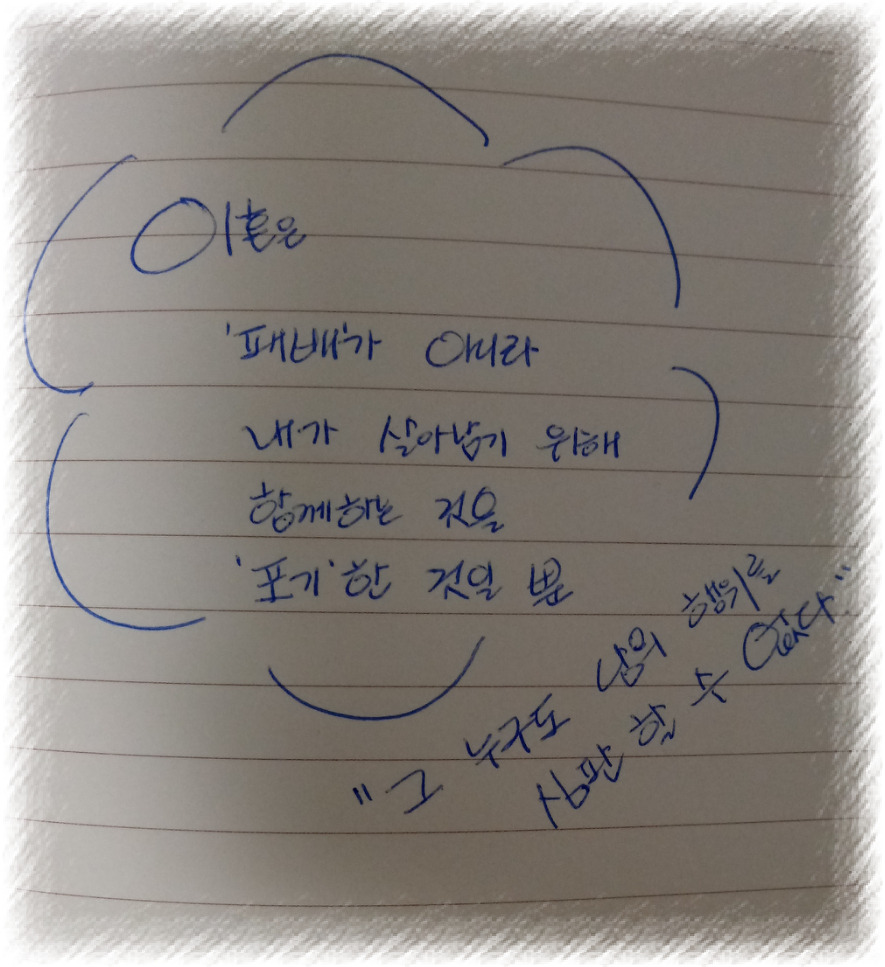 이혼은
'패배'가 아니라
내가 살아남기 위해
함께하는 것을
'포기'한 것일 뿐
"그 누구도 남의 행위를
심판 할 수 없다"